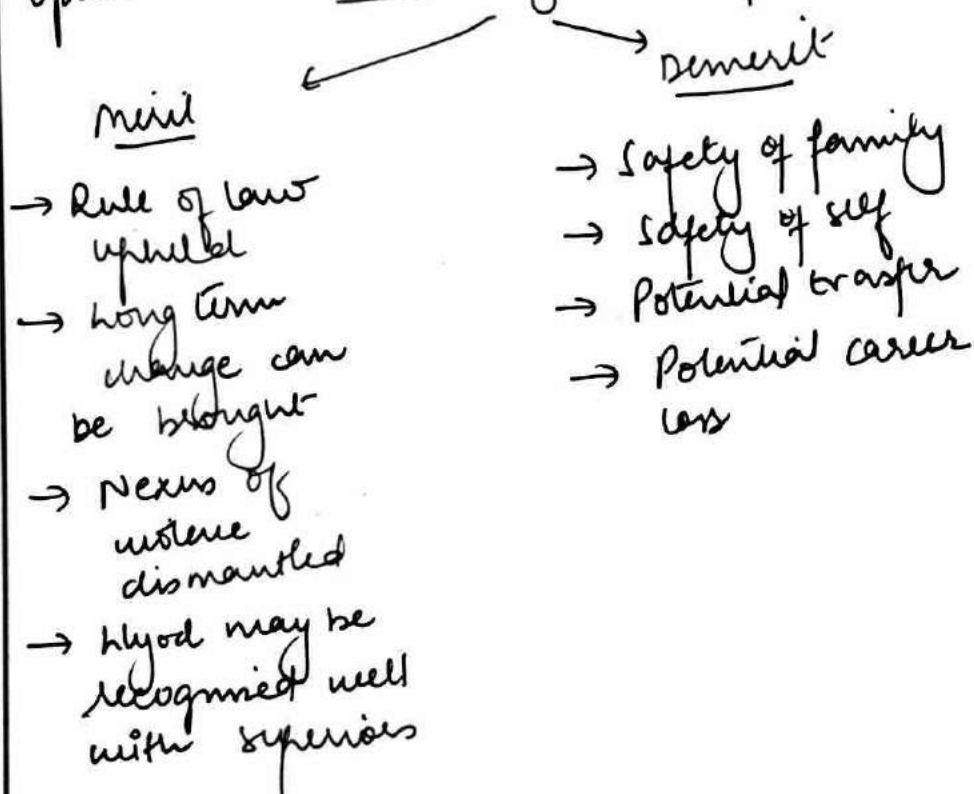 Merit
→ Rule of law
upheld
→ Long term
change can
be brought
→ Nexus of
violence
dismantled
→ Llyod may be
recognised well
with superiors
Demerit
→ Safety of family
→ Safety of self
→ Potential trasfer
→ Potential career
loss